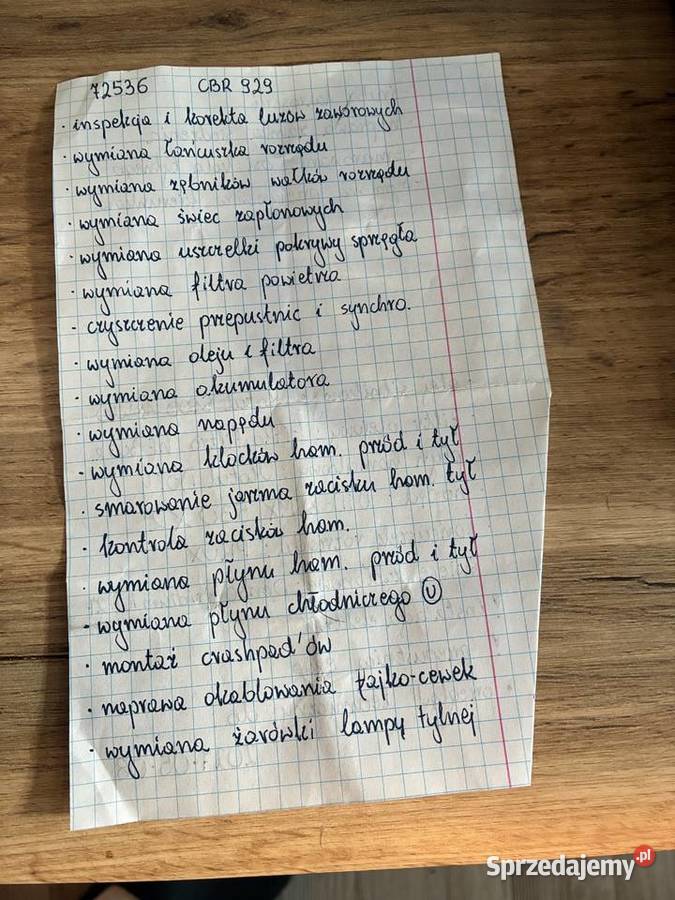 72536 CBR 929
· inspekcja i korekta luzów zaworowych
· wymiana łańcuszka rozrządu
· wymiana zębników wałków rozrządu
· wymiana świec zapłonowych
· wymiana uszczelki pokrywy sprzęgła
· wymiana filtra powietrza
- czyszczenie przepustnic i synchro.
· wymiana oleju i filtra
· wymiana akumulatora
· wymiana napędu
· wymiana klocków ham. przód i tył
· smarowanie jarzma zacisku ham. tył
· kontrola zacisków ham.
· wymiana płynu ham. przód i tył
· wymiana płynu chłodniczego
· montaż crashpad'ów
· naprawa okablowania fajko-cewek
· wymiana żarówki lampy tylnej
Sprzedajemy.pl